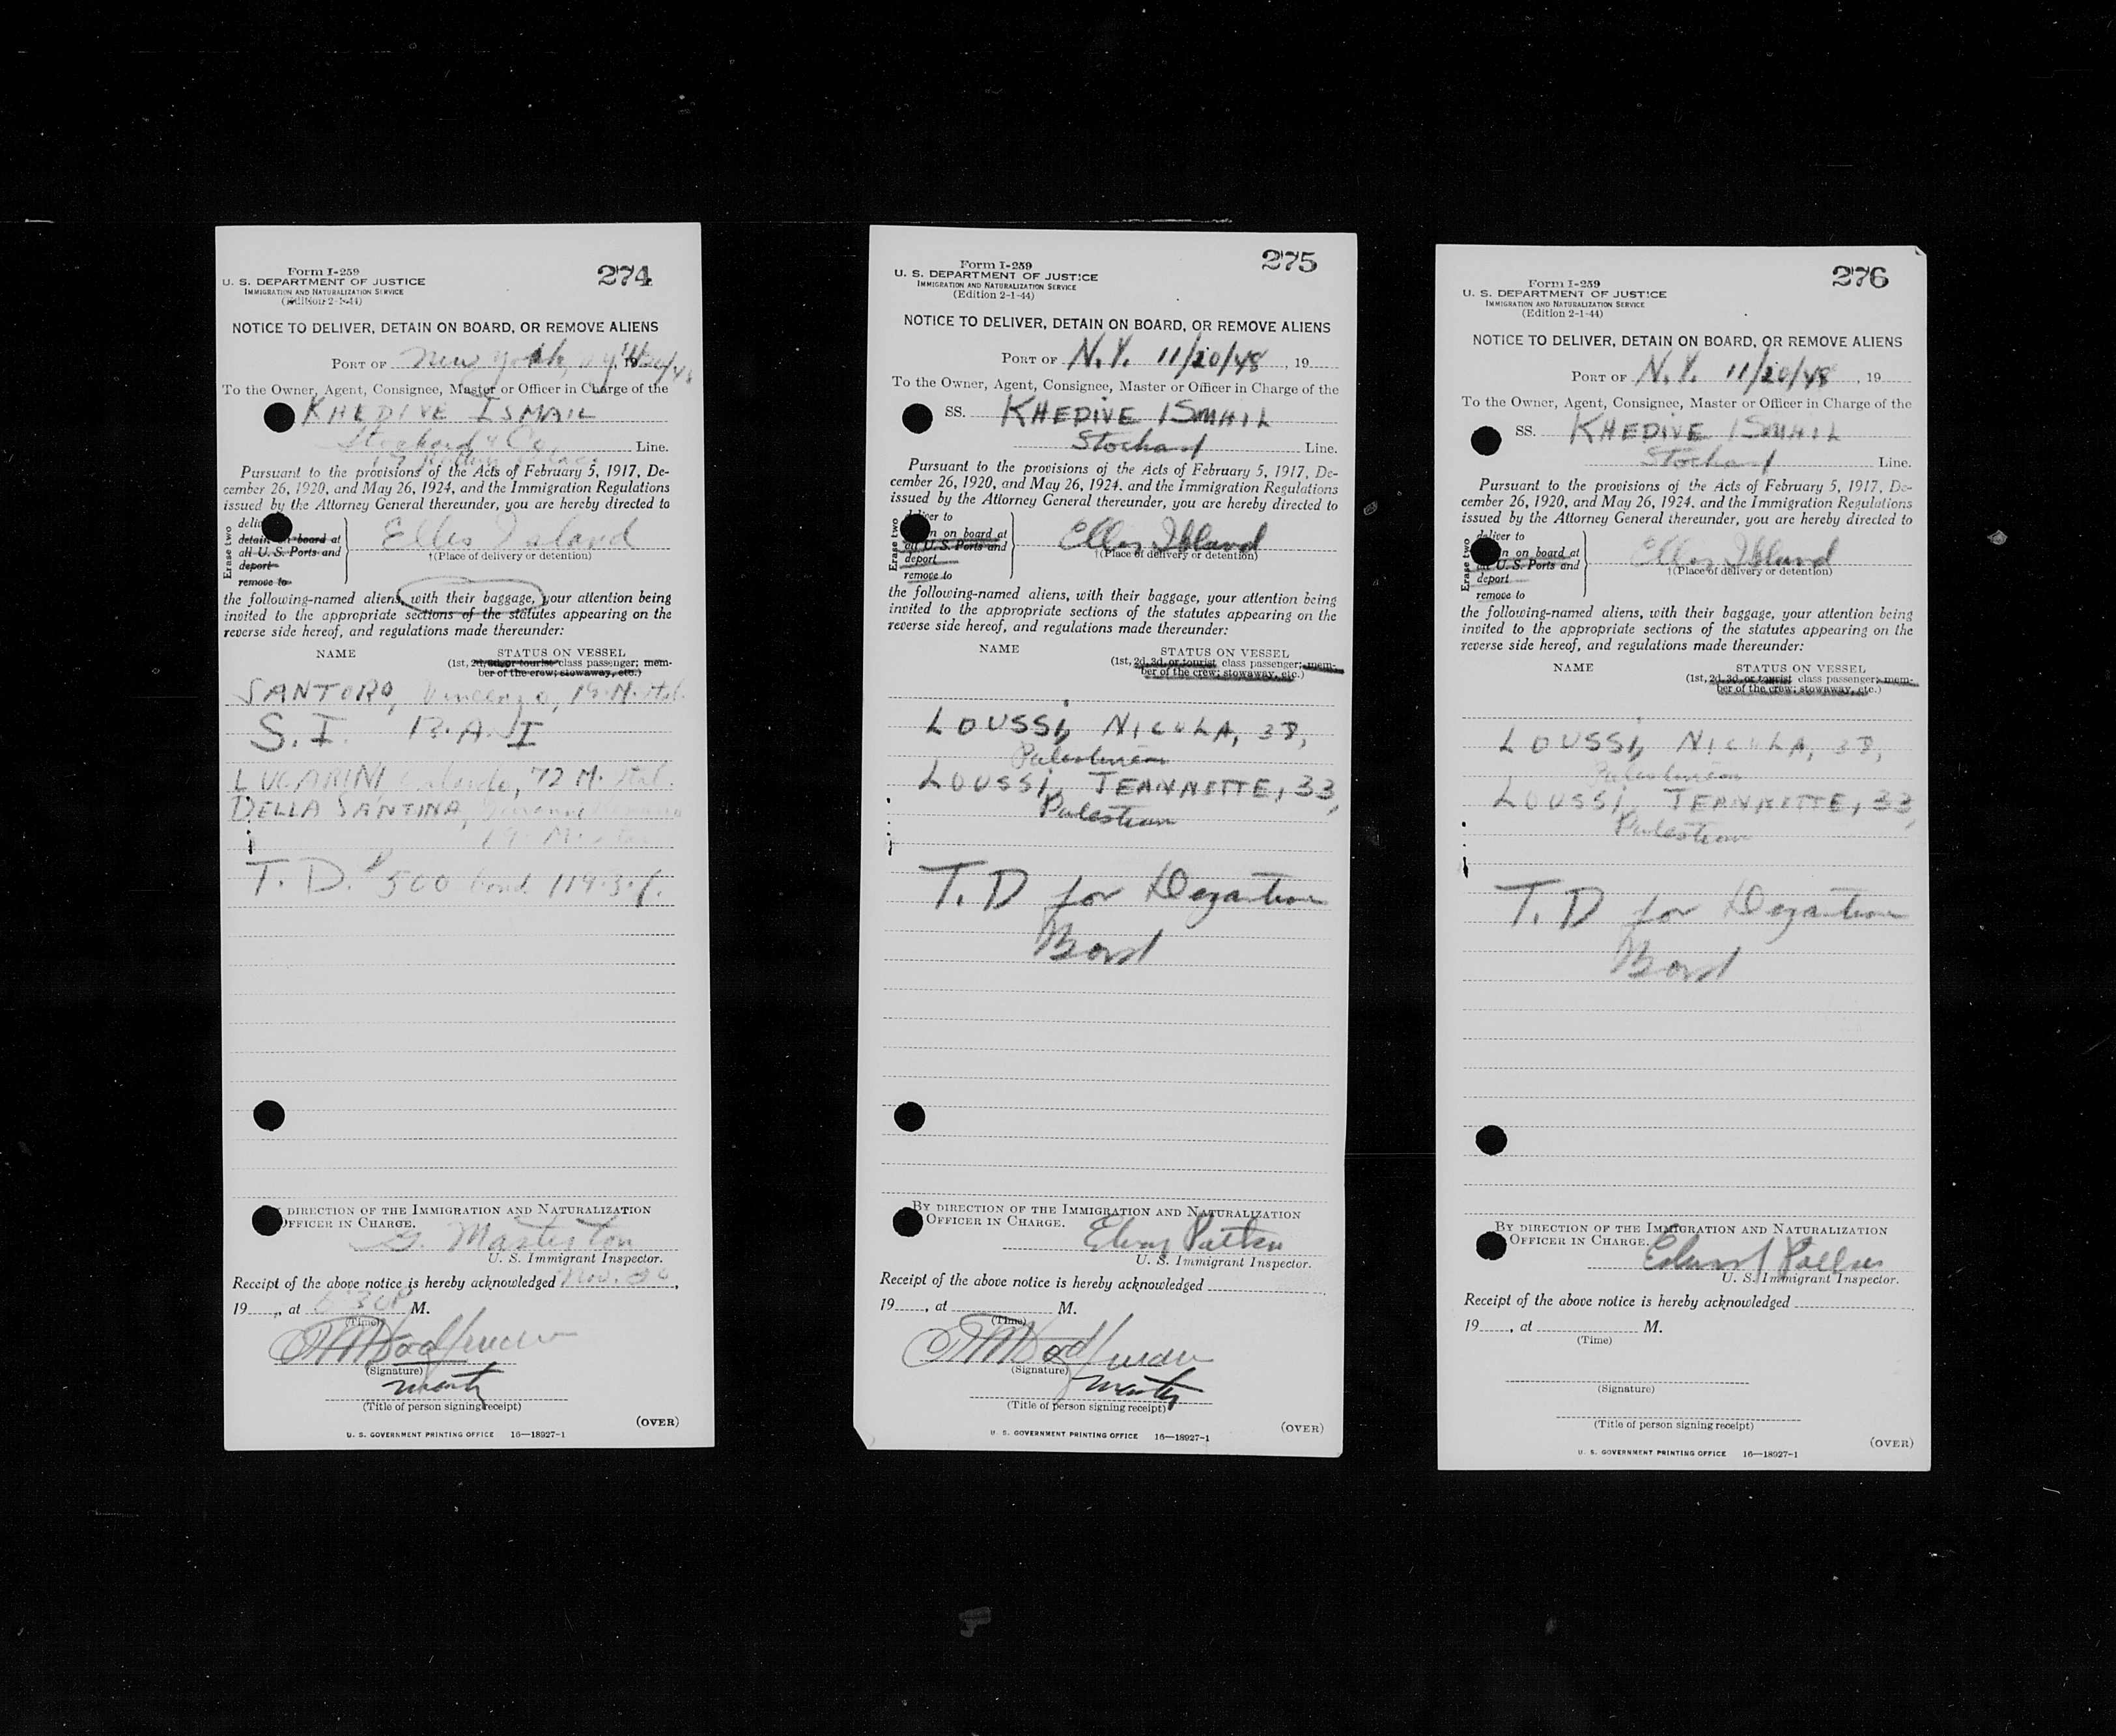 274
Form I-259
U. S. DEPARTMENT OF JUSTICE
IMMIGRATION AND NATURALIZATION SERVICE
(Edition 2-1-44)
NOTICE TO DELIVER, DETAIN ON BOARD, OR REMOVE ALIENS
PORT OF New York, 19
To the Owner, Agent, Consignee, Master or Officer in Charge of the
KHEDIVE ISMAIL
Stockard & Co Line.
Pursuant to the provisions of the Acts of February 5, 1917, De-
cember 26, 1920, and May 26, 1924, and the Immigration Regulations
issued by the Attorney General thereunder, you are hereby directed to
Erase two
detain on board at
all U. S. Ports and
deport
remove to
Ellis Island
†(Place of delivery or detention)
the following-named aliens, with their baggage, your attention being
invited to the appropriate sections of the statutes appearing on the
reverse side hereof, and regulations made thereunder:
NAME STATUS ON VESSEL
(1st, 2d, 3d, or tourist class passenger; mem-
ber of the crew; stowaway, etc.)
SANTORO, Vincenzo, 19. M. Ital.
S. I. B. A. I
LUGARINI 72 M. Ital.
DELLA SANTINA,
19 M.
T. D. $500 bond
DIRECTION OF THE IMMIGRATION AND NATURALIZATION
OFFICER IN CHARGE.
G. Masterton
U. S. Immigrant Inspector.
Receipt of the above notice is hereby acknowledged Nov. 20,
19, at 6:30 P M.
(Time)
(Signature)
(Title of person signing receipt)
(OVER)
U. S. GOVERNMENT PRINTING OFFICE 16—18927-1
275
Form I-259
U. S. DEPARTMENT OF JUSTICE
IMMIGRATION AND NATURALIZATION SERVICE
(Edition 2-1-44)
NOTICE TO DELIVER, DETAIN ON BOARD, OR REMOVE ALIENS
PORT OF N.Y. 11/20/48, 19
To the Owner, Agent, Consignee, Master or Officer in Charge of the
SS. KHEDIVE ISMAIL
Stockard Line.
Pursuant to the provisions of the Acts of February 5, 1917, De-
cember 26, 1920, and May 26, 1924, and the Immigration Regulations
issued by the Attorney General thereunder, you are hereby directed to
Erase two
deliver to
on board at
all U. S. Ports and
deport
remove to
Ellis Island
†(Place of delivery or detention)
the following-named aliens, with their baggage, your attention being
invited to the appropriate sections of the statutes appearing on the
reverse side hereof, and regulations made thereunder:
NAME STATUS ON VESSEL
(1st, 2d, 3d, or tourist class passenger; mem-
ber of the crew; stowaway, etc.)
LOUSSI, NICOLA, 38,
Palestinian
LOUSSI, JEANNETTE, 33,
Palestinian
T. D for Departure
Bond
BY DIRECTION OF THE IMMIGRATION AND NATURALIZATION
OFFICER IN CHARGE.
U. S. Immigrant Inspector.
Receipt of the above notice is hereby acknowledged
19, at M.
(Time)
(Signature)
(Title of person signing receipt)
(OVER)
U. S. GOVERNMENT PRINTING OFFICE 16—18927-1
276
Form I-259
U. S. DEPARTMENT OF JUSTICE
IMMIGRATION AND NATURALIZATION SERVICE
(Edition 2-1-44)
NOTICE TO DELIVER, DETAIN ON BOARD, OR REMOVE ALIENS
PORT OF N.Y. 11/20/48, 19
To the Owner, Agent, Consignee, Master or Officer in Charge of the
SS. KHEDIVE ISMAIL
Stockard Line.
Pursuant to the provisions of the Acts of February 5, 1917, De-
cember 26, 1920, and May 26, 1924, and the Immigration Regulations
issued by the Attorney General thereunder, you are hereby directed to
Erase two
deliver to
on board at
all U. S. Ports and
deport
remove to
Ellis Island
†(Place of delivery or detention)
the following-named aliens, with their baggage, your attention being
invited to the appropriate sections of the statutes appearing on the
reverse side hereof, and regulations made thereunder:
NAME STATUS ON VESSEL
(1st, 2d, 3d, or tourist class passenger; mem-
ber of the crew; stowaway, etc.)
LOUSSI, NICOLA, 38,
Palestinian
LOUSSI, JEANNETTE, 33,
Palestinian
T. D for Departure
Bond
BY DIRECTION OF THE IMMIGRATION AND NATURALIZATION
OFFICER IN CHARGE.
U. S. Immigrant Inspector.
Receipt of the above notice is hereby acknowledged
19, at M.
(Time)
(Signature)
(Title of person signing receipt)
(OVER)
U. S. GOVERNMENT PRINTING OFFICE 16—18927-1